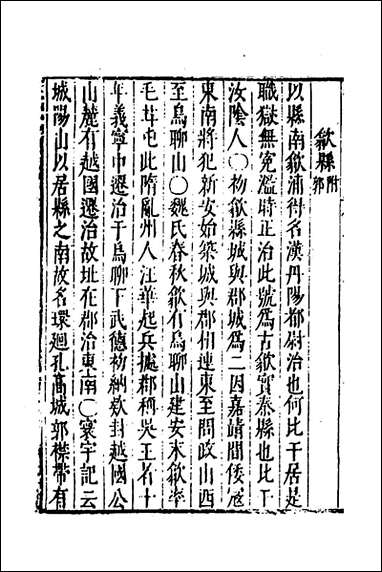 歙縣附郭
以縣南歙浦得名漢丹陽都尉治也何比干居是
職獄無冤濫時正治此號為古歙實秦縣也比干
汝陰人〇初歙縣城與郡城為二因嘉靖間倭寇
東南將犯新安始築城與郡州連東至問政山西
至烏聊山〇魏氏春秋歙有烏聊山建安末歙率
毛甘屯此隋亂州人汪華起兵據郡稱吳王者十
年義寧中遷治于烏聊下武德初納欵封越國公
山麓有越國遷治故址在郡治東南〇寰宇記云
城陽山以居縣之南故名環迴孔高城郭襟帶有